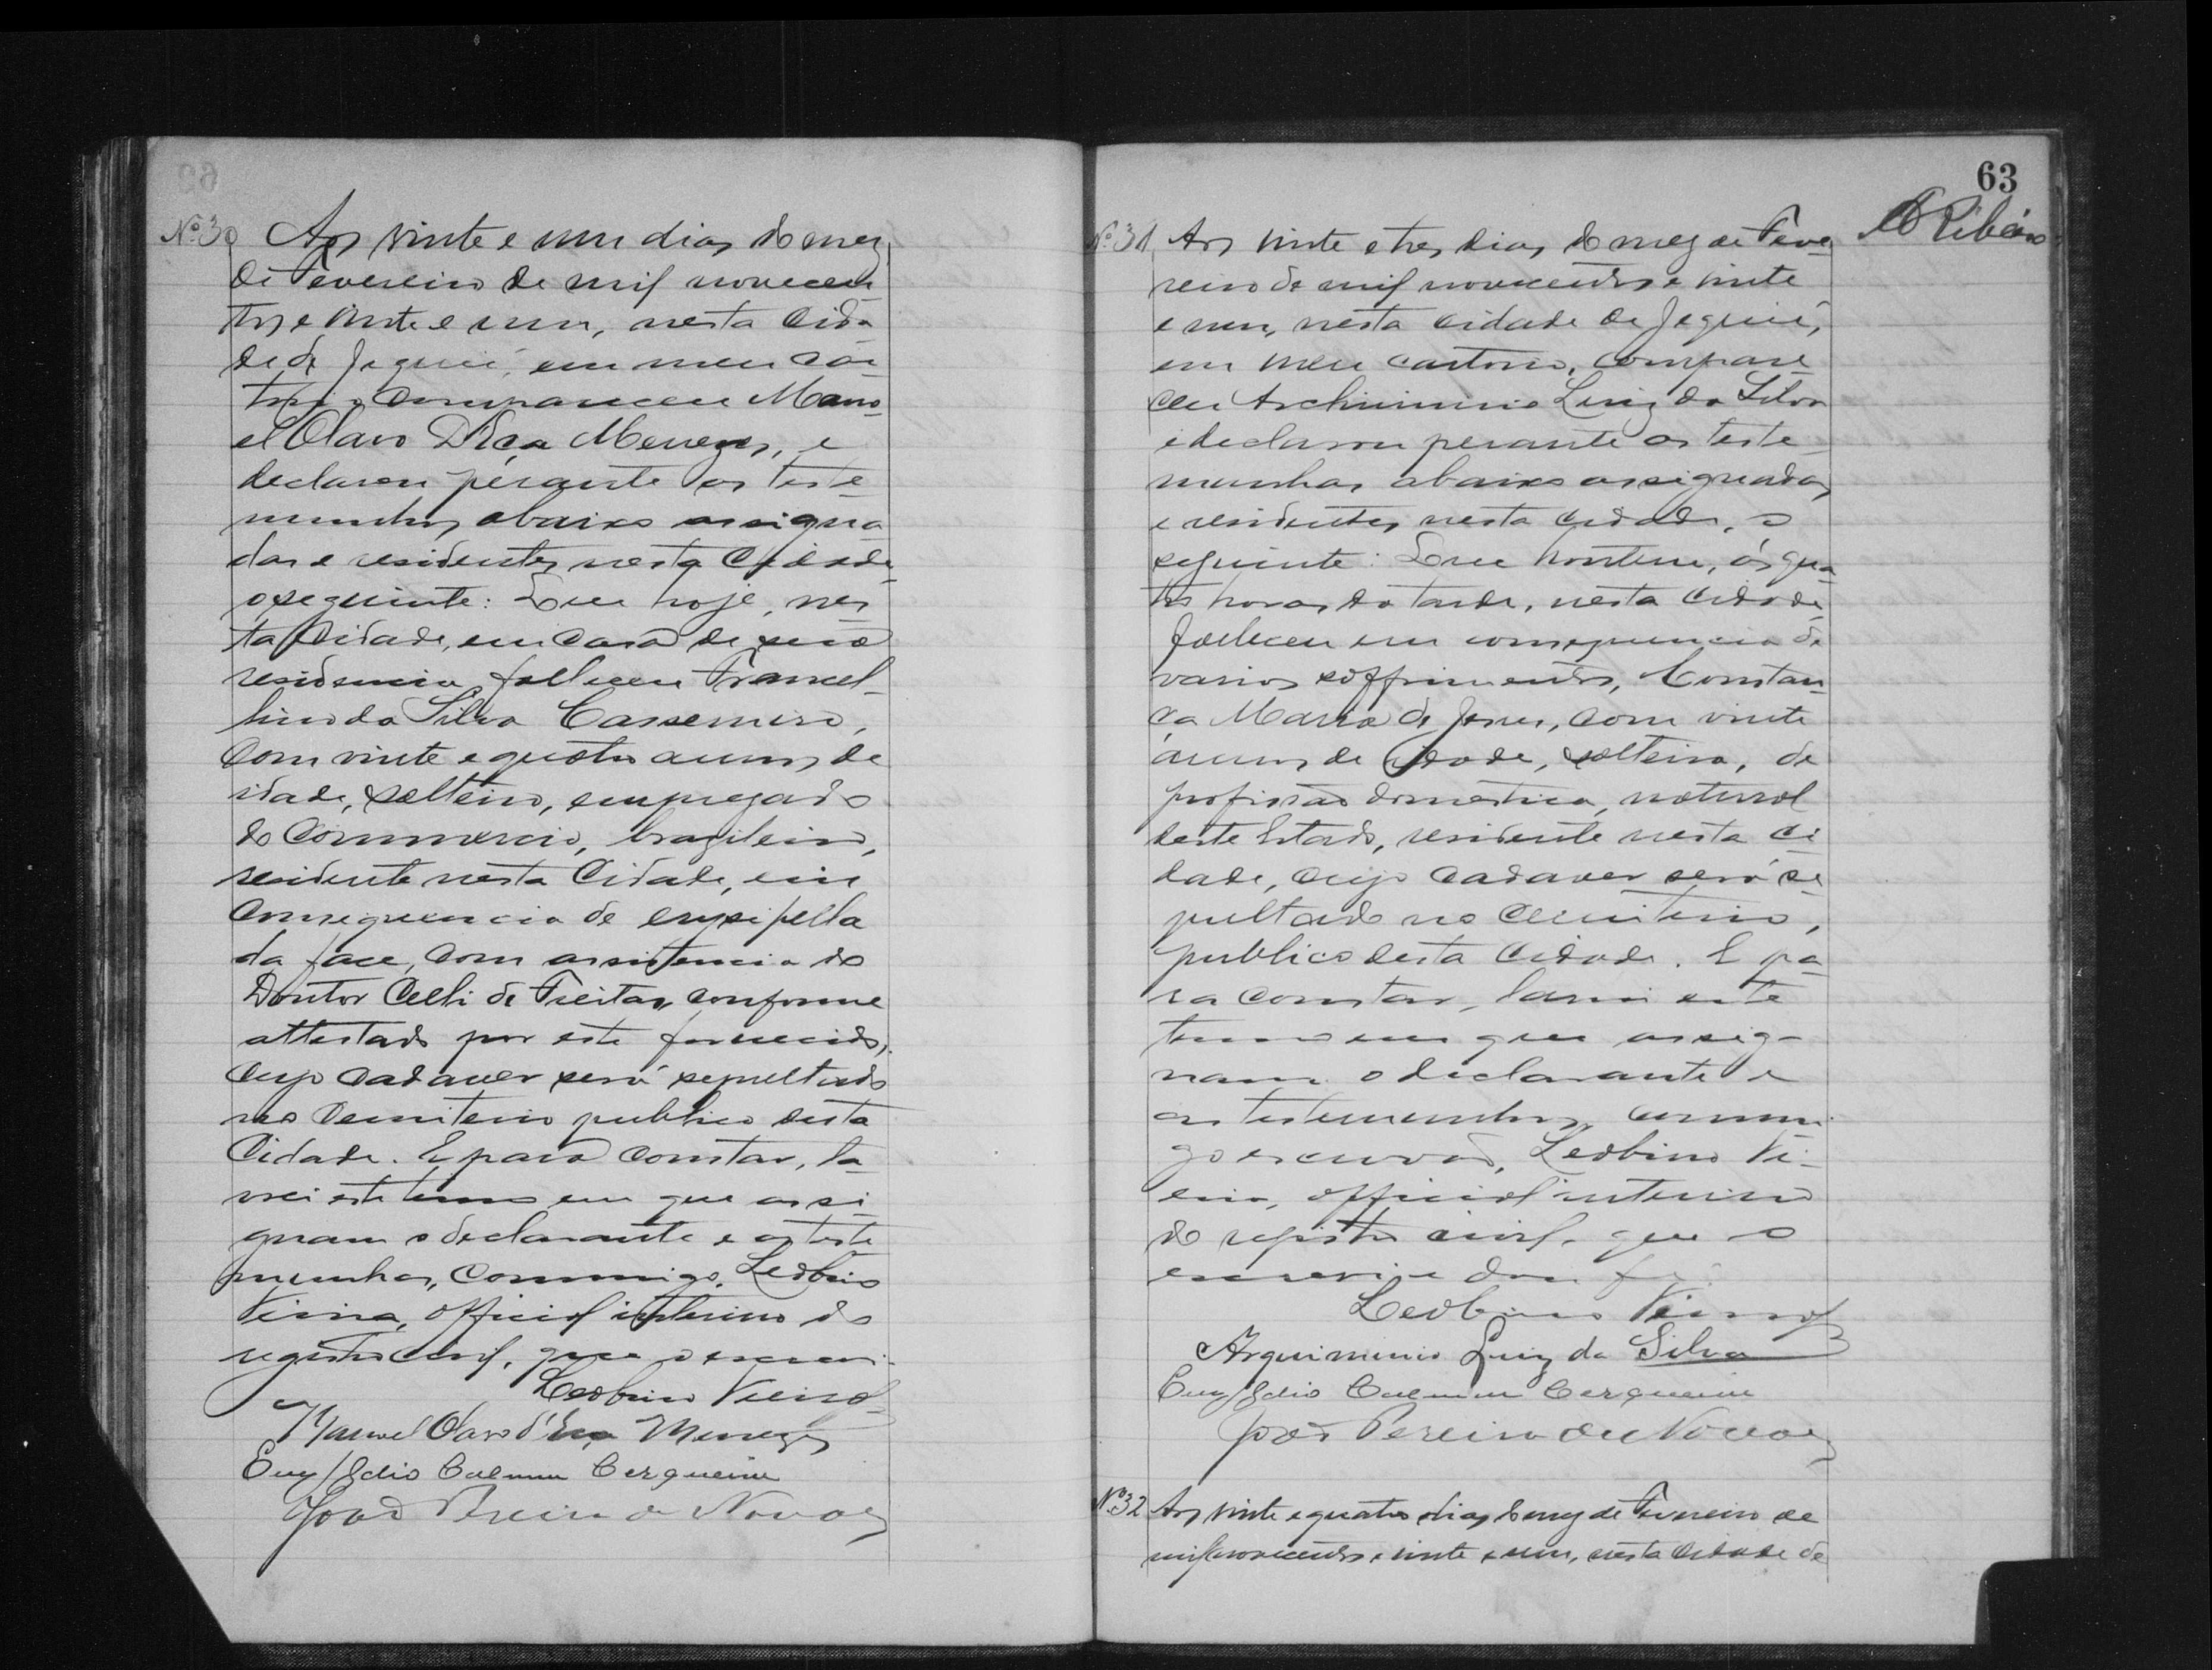 Nº 30 Aos vinte e um dias do mez
de Fevereiro de mil novecen
tos e vinte e um, nesta cida
de de Jequié, em meu car
torio compareceu Mano
el Olavo D'Eça Menezes, e
declarou perante as teste
munhas abaixo assigna
das e residentes nesta cidade
o seguinte: Que hoje, nes
ta cidade, em casa de sua
residencia, falleceu Francel
lino da Silva Cassemiro,
com vinte e quatro annos de
idade, solteiro, empregado
do commercio, brazileiro,
residente nesta cidade, em
consequencia de erysipella
da face, com assistencia do
Doutor Celli de Freitas, conforme
attestado por este fornecido,
cujo cadaver será sepultado
no cemiterio publico desta
cidade. E para constar, la
vrei este termo em que assi
gnam o declarante e as teste
munhas, commigo, Leobino
Vieira, official interino do
registro civil, que o escrevi.
Leobino Vieira
Manoel Olavo d'Eça Menezes
Calmon Cerqueira
João Pereira de Novaes
63
Ribeiro
Nº 31 Aos vinte e tres dias do mez de Feve
reiro de mil novecentos e vinte
e um, nesta cidade de Jequié,
em meu cartorio, compare
ceu Archiminio Luiz da Silva
e declarou perante as teste
munhas abaixo assignadas
e residentes nesta cidade, o
seguinte: Que hontem, ás qua
tro horas da tarde, nesta cidade
falleceu em consequencia de
varios soffrimentos, Constan
ça Maria de Jesus, com vinte
annos de idade, solteira, de
profissão domestica, natural
deste Estado, residente nesta ci
dade, cujo cadaver será se
pultado no cemiterio,
publico desta cidade. E pa
ra constar, lavrei este
termo em que assig-
nam o declarante e
as testemunhas commi
go escrivão, Leobino Vi-
eira, official interino
do registro civil, que o
escrevi e dou fé.
Leobino Vieira
Arquiminio Luiz da Silva
Calmon Cerqueira
João Pereira de Novaes
Nº 32 Aos vinte e quatro dias do mez de Fevereiro de
mil novecentos e vinte e um, nesta cidade de